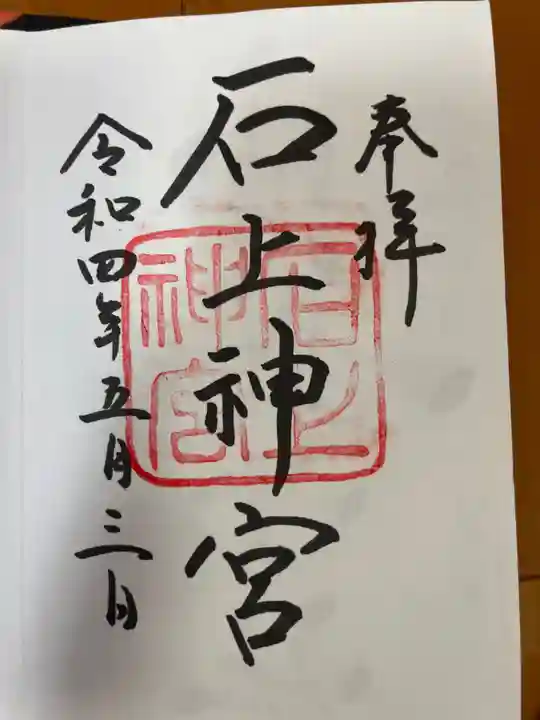 奉拝
石上神宮
石上
神宮
令和四年五月三日